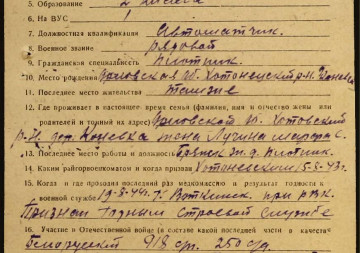 5. Образование 2 класса
6. На ВУС
7. Должностная квалификация Автоматчик.
8. Военное звание рядовой
9. Гражданская специальность плотник.
10. Место рождения Орловская о. Хотынецкий р-н
11. Последнее место жительства также
12. Где проживает в настоящее время семья (фамилия, имя и отчество жены или
родителей и точный их адрес) Орловской о. Хотовский
р-н дер. жена Лучина
13. Последнее место работы и должность ж.д. плотник.
14. Каким райгорвоенкоматом и когда призван Хотынецким 15-8-43 г.
15. Когда и где проходил последний раз медкомиссию и результат годности к
военной службе 19-8-44 г. г. Воткинск при РВК.
Признан годным строевой службе
16. Участие в Отечественной войне (в составе какой последней части в качестве
Белорусский 918 ср. 250 сд.